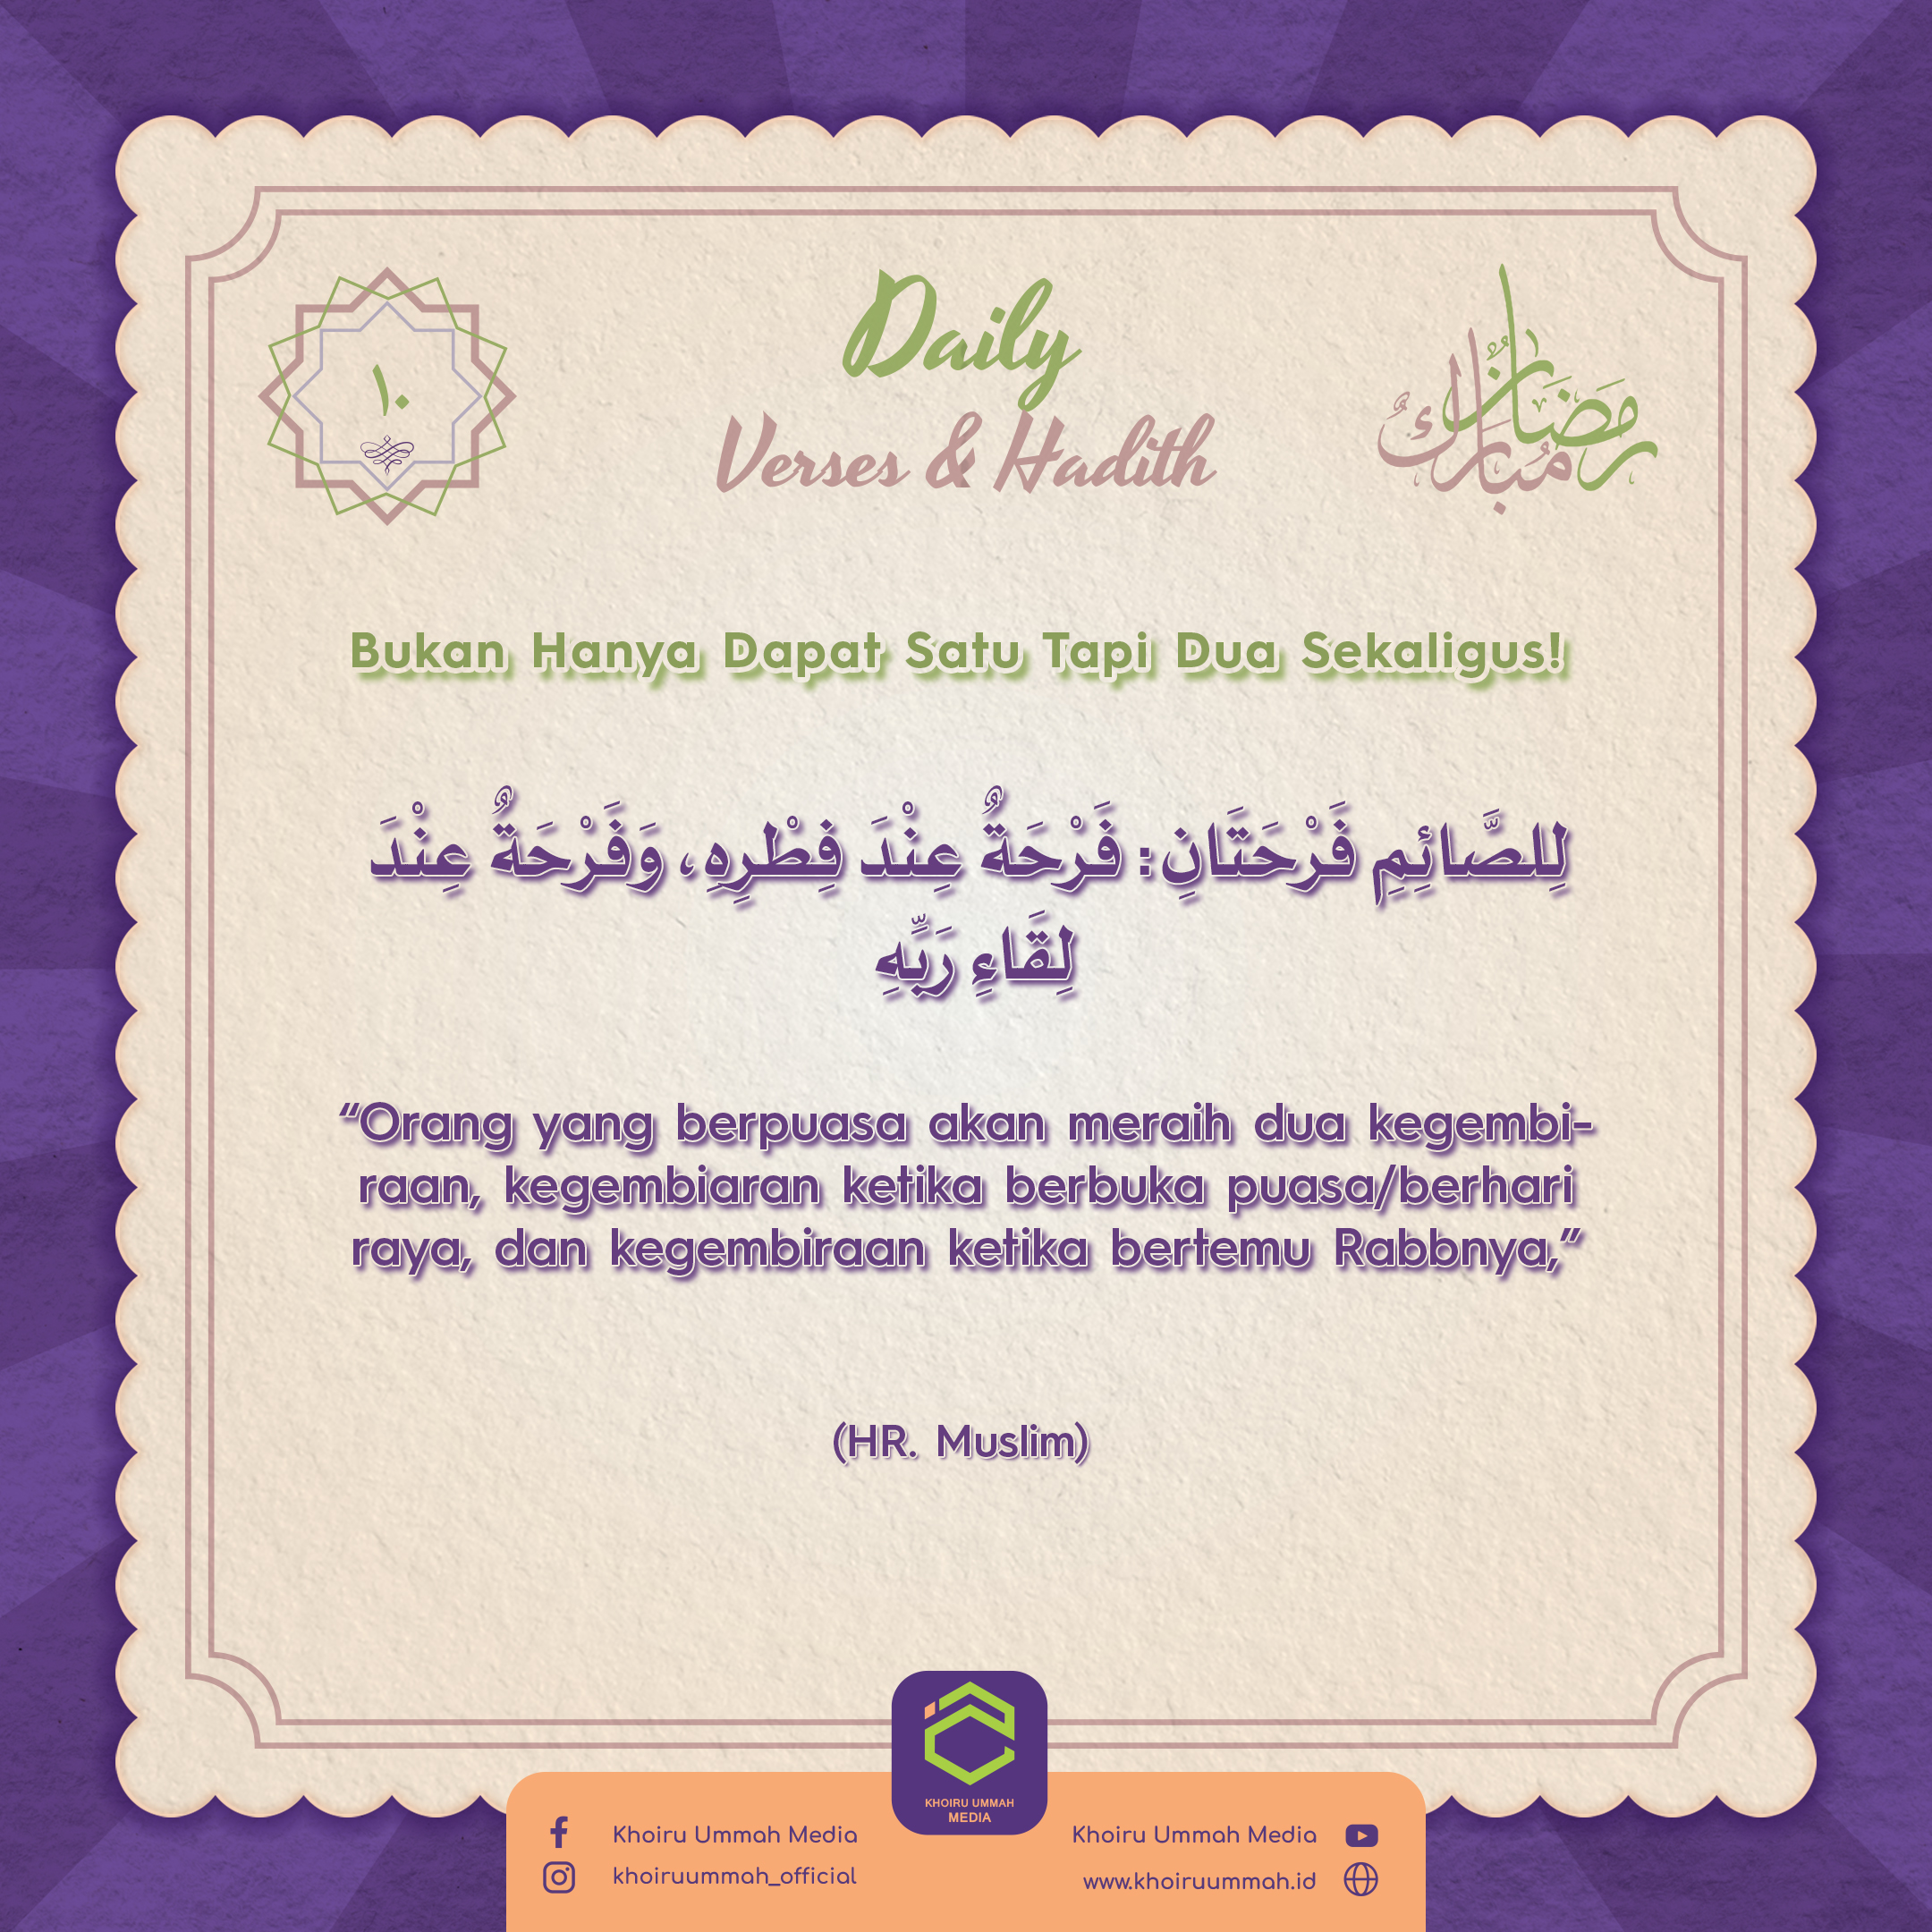 ١٠
Daily
Verses & Hadith
رمضان
مبارك
Bukan Hanya Dapat Satu Tapi Dua Sekaligus!
لِلصَّائِمِ فَرْحَتَانِ: فَرْحَةٌ عِنْدَ فِطْرِهِ، وَفَرْحَةٌ عِنْدَ
لِقَاءِ رَبِّهِ
“Orang yang berpuasa akan meraih dua kegembi-
raan, kegembiaran ketika berbuka puasa/berhari
raya, dan kegembiraan ketika bertemu Rabbnya,”
(HR. Muslim)
KHOIRU UMMAH
MEDIA
Khoiru Ummah Media
khoiruummah_official
Khoiru Ummah Media
www.khoiruummah.id